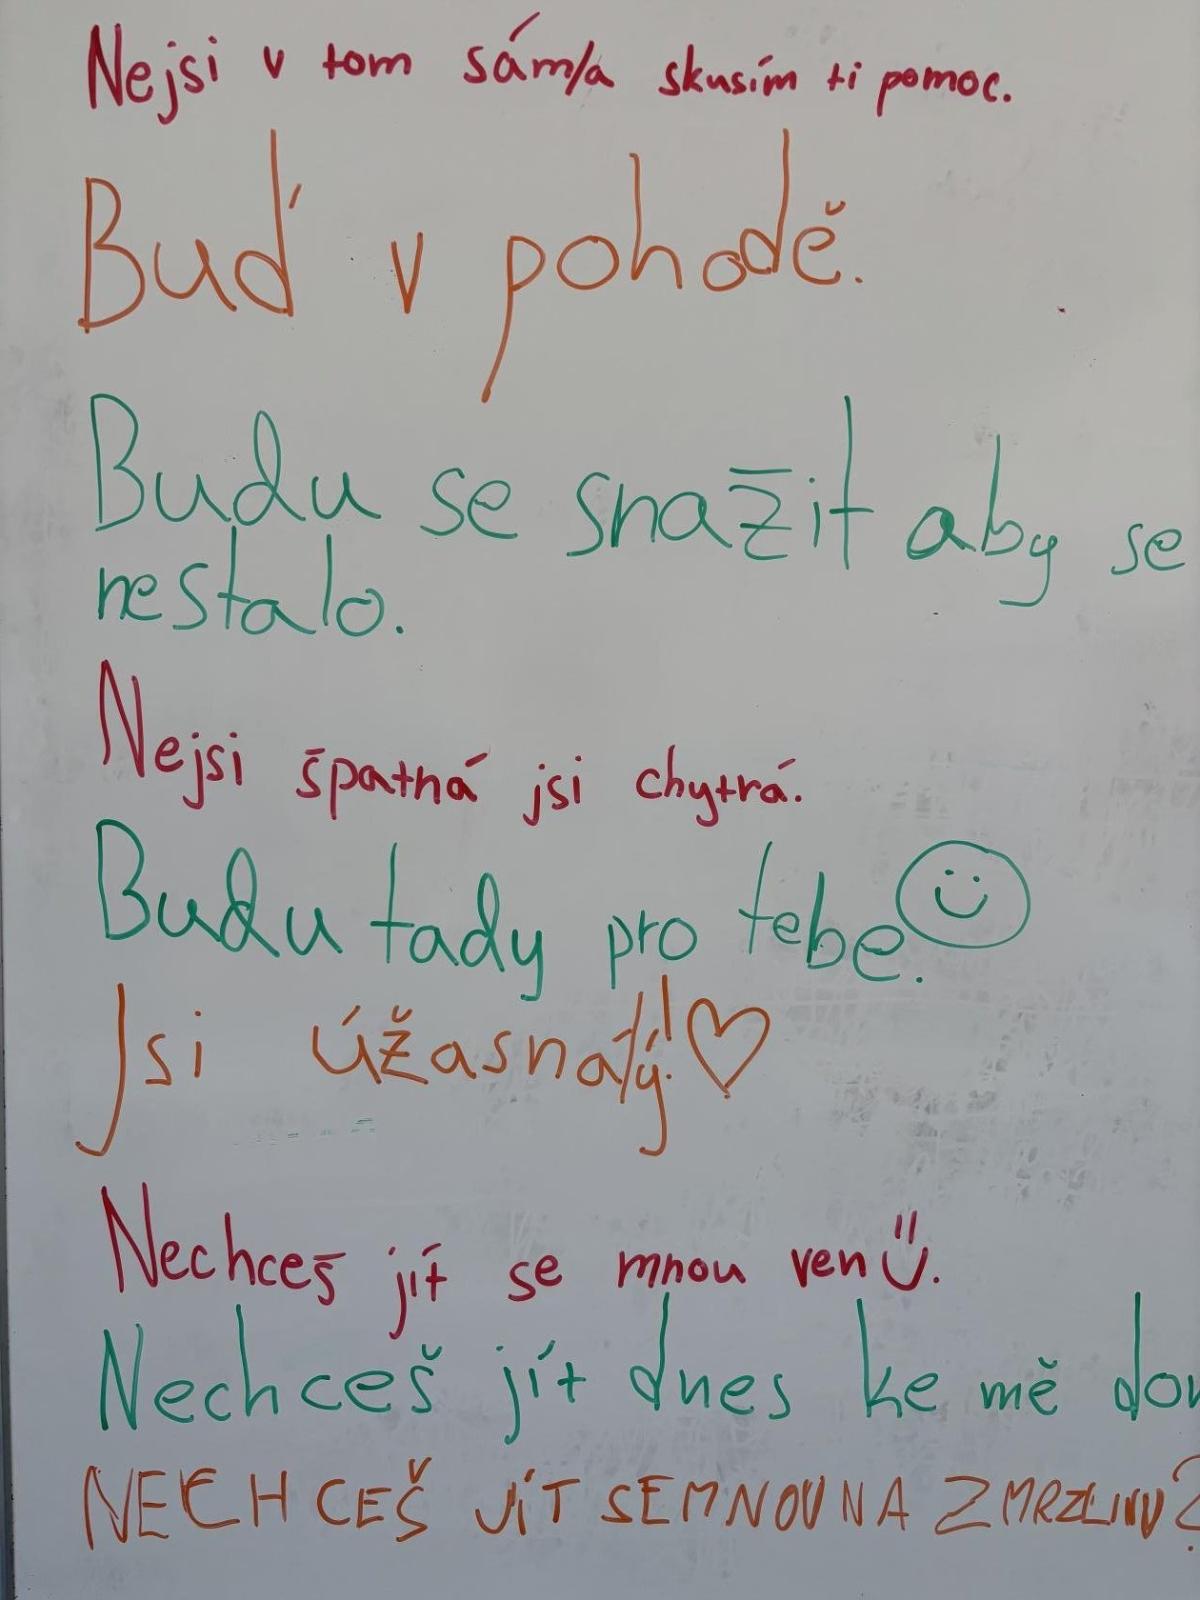 Nejsi v tom sám/a skusím ti pomoc.
Buď v pohodě.
Budu se snažit aby se
nestalo.
Nejsi špatná jsi chytrá.
Budu tady pro tebe.
Jsi úžasná/ý!
Nechceš jít se mnou ven
Nechceš jít dnes ke mě
NECHCEŠ JÍT SEMNOU NA ZMRZLINU?